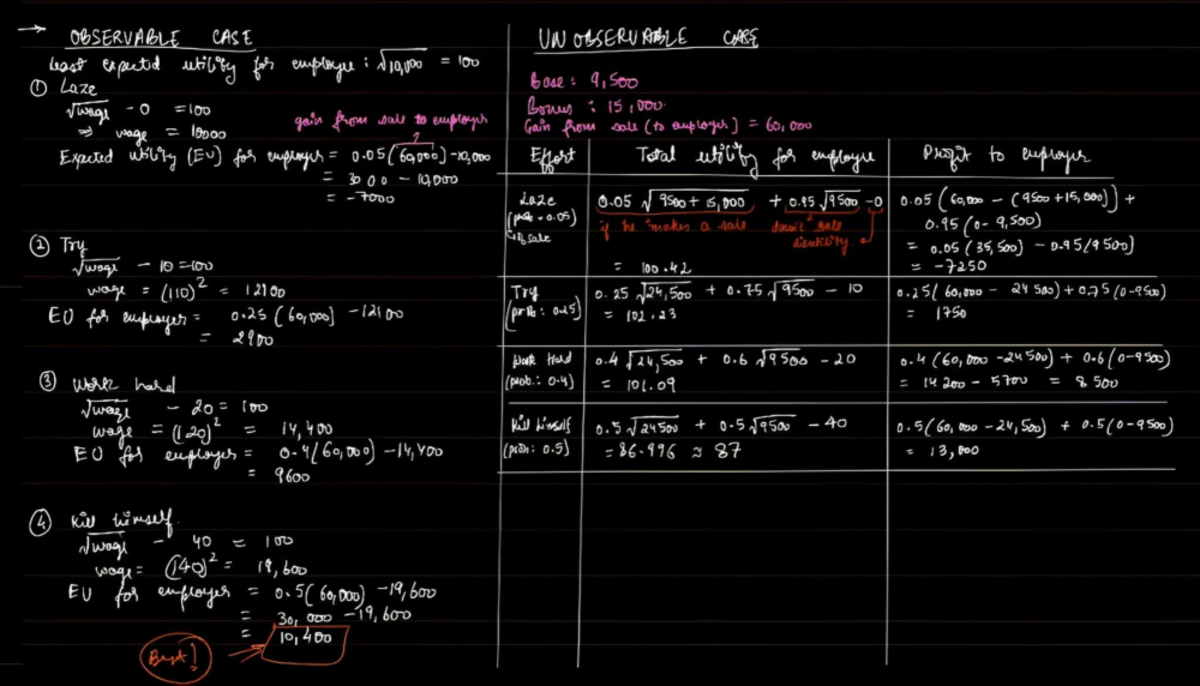 → OBSERVABLE CASE
Least expected utility for employee : √10,000 = 100
① Laze
√wage - 0 = 100
⇒ wage = 10000
gain from sale to employer
Expected utility (EU) for employer = 0.05(60,000) - 10,000
= 3000 - 10,000
= -7000
② Try
√wage - 10 = 100
wage = (110)² = 12100
EU for employer = 0.25(60,000) - 12100
= 2900
③ Work hard
√wage - 20 = 100
wage = (120)² = 14,400
EU for employer = 0.4(60,000) - 14,400
= 9600
④ Kill himself.
√wage - 40 = 100
wage = (140)² = 19,600
EU for employer = 0.5(60,000) - 19,600
= 30,000 - 19,600
= 10,400
Best!
UNOBSERVABLE CASE
Base : 9,500
Bonus : 15,000.
Gain from sale (to employer) = 60,000
Effort Total utility for employee Profit to employer
Laze
(prob = 0.05)
↳ of sale
0.05 √9500 + 15,000 + 0.95 √9500 - 0
if he makes a sale doesn't sale
disutility.
= 100.42
0.05(60,000 - (9500 + 15,000)) +
0.95(0 - 9,500)
= 0.05(35,500) - 0.95(9500)
= -7250
Try
(prob : 0.25)
0.25 √24,500 + 0.75 √9500 - 10
= 102.23
0.25(60,000 - 24500) + 0.75(0-9500)
= 1750
Work Hard
(prob.: 0.4)
0.4 √24,500 + 0.6 √9500 - 20
= 101.09
0.4(60,000 - 24500) + 0.6(0-9500)
= 14200 - 5700 = 8500
Kill himself
(prob: 0.5)
0.5 √24500 + 0.5 √9500 - 40
= 86.996 ≈ 87
0.5(60,000 - 24,500) + 0.5(0-9500)
= 13,000